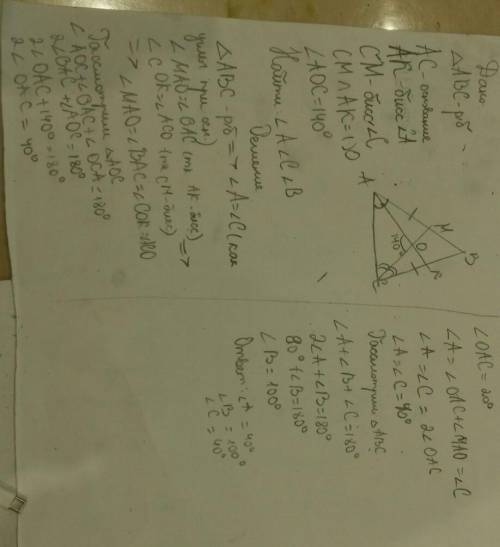 Дано:
△ABC-рб
AC-основание
AK-бисс ∠A
CM-бисс ∠C
CM∩AK=(·)O
∠AOC=140°
Найти ∠A ∠C ∠B
A
M
B
O
K
C
140°
Решение
△ABC-рб => ∠A=∠C (как
углы при осн)
∠MAO=∠OAC (тк AK-бисс)
∠COK=∠ACO (тк CM-бисс) =>
=> ∠MAO=∠BAC=∠COK=∠ACO
Рассмотрим △AOC
∠AOC+∠OAC+∠OCA=180°
2∠OAC+∠AOC=180°
2∠OAC+140°=180°
2∠OAC=40°
∠OAC=20°
∠A=∠OAC+∠MAO=∠C
∠A=∠C=2∠OAC
∠A=∠C=40°
Рассмотрим △ABC
∠A+∠B+∠C=180°
2∠A+∠B=180°
80°+∠B=180°
∠B=100°
Ответ: ∠A=40°
∠B=100°
∠C=40°